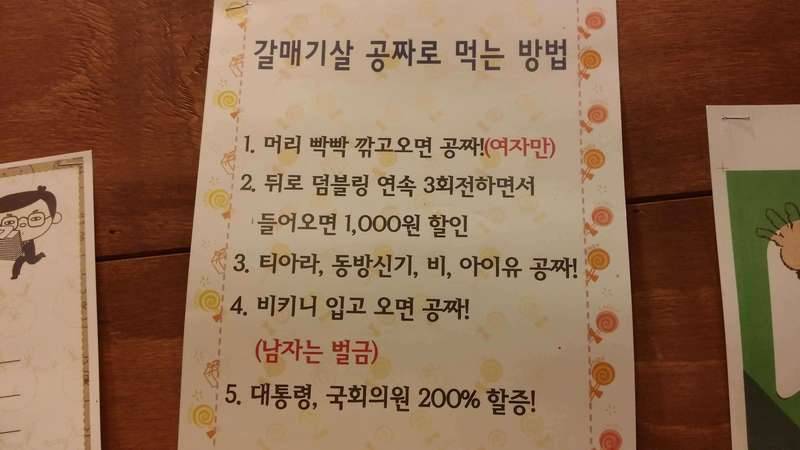 갈매기살 공짜로 먹는 방법
1. 머리 빡빡 깎고오면 공짜!(여자만)
2. 뒤로 덤블링 연속 3회전하면서
들어오면 1,000원 할인
3. 티아라, 동방신기, 비, 아이유 공짜!
4. 비키니 입고 오면 공짜!
(남자는 벌금)
5. 대통령, 국회의원 200% 할증!